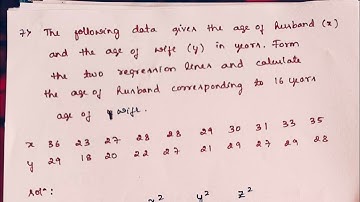 7) The following data gives the age of husband (x)
and the age of wife (y) in years. Form
the two regression lines and calculate
the age of husband corresponding to 16 years
age of wife.
x 36 23 27 28 28 29 30 31 33 35
y 29 18 20 22 27 21 29 27 29 28
Solⁿ:
x² y² z²